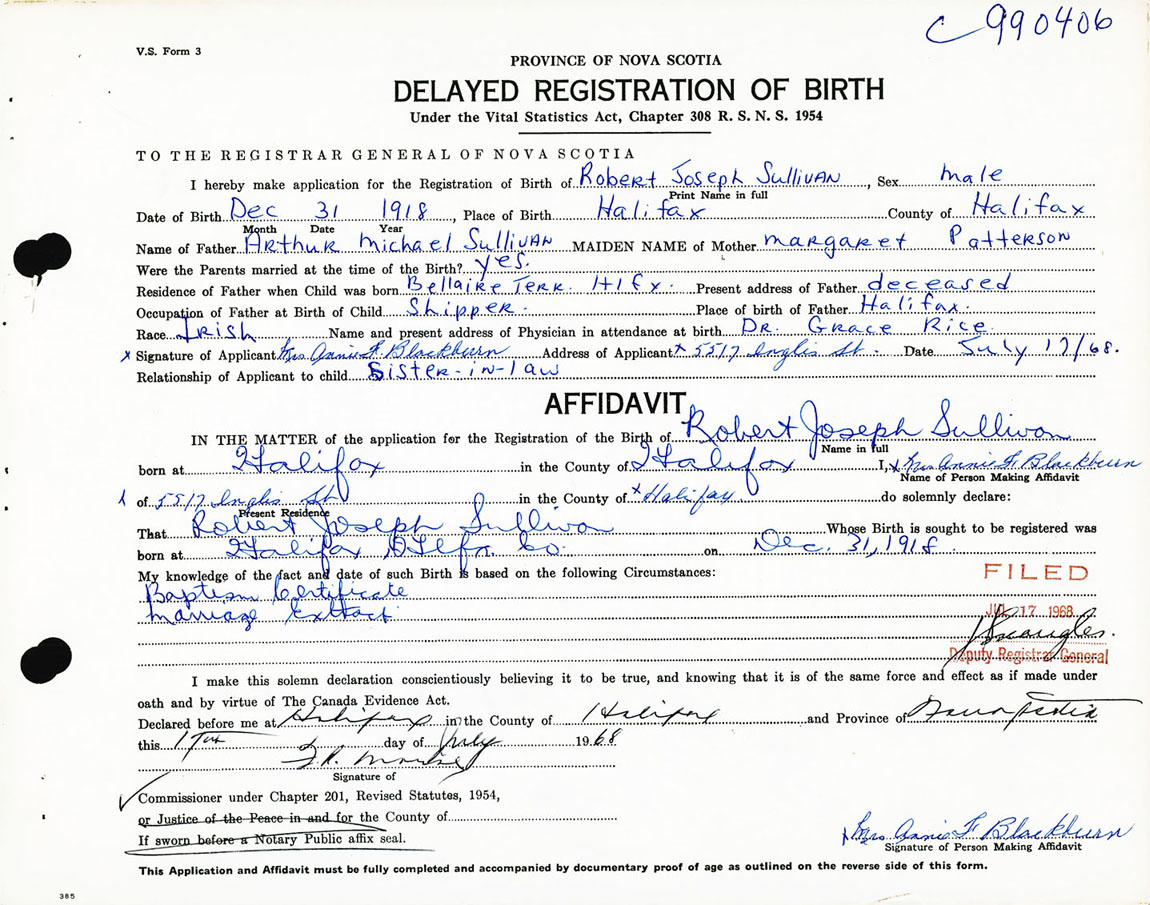 C 990406
V.S. Form 3
PROVINCE OF NOVA SCOTIA
DELAYED REGISTRATION OF BIRTH
Under the Vital Statistics Act, Chapter 308 R. S. N. S. 1954
TO THE REGISTRAR GENERAL OF NOVA SCOTIA
I hereby make application for the Registration of Birth of Robert Joseph Sullivan, Sex male
Print Name in full
Date of Birth Dec 31 1918, Place of Birth Halifax County of Halifax
Month Date Year
Name of Father Arthur Michael Sullivan MAIDEN NAME of Mother Margaret Patterson
Were the Parents married at the time of the Birth? yes.
Residence of Father when Child was born Bellaire Terr. Hfx. Present address of Father deceased
Occupation of Father at Birth of Child Shipper. Place of birth of Father Halifax.
Race Irish Name and present address of Physician in attendance at birth Dr. Grace Rice.
x Signature of Applicant Mrs Annie F. Blackburn Address of Applicant x 5517 Inglis St. Date July 17/68.
Relationship of Applicant to child Sister-in-law
AFFIDAVIT
IN THE MATTER of the application for the Registration of the Birth of Robert Joseph Sullivan
Name in full
born at Halifax in the County of Halifax I, x Mrs Annie F Blackburn
Name of Person Making Affidavit
x of 5517 Inglis St in the County of x Halifax do solemnly declare:
Present Residence
That Robert Joseph Sullivan Whose Birth is sought to be registered was
born at Halifax Co. on Dec. 31, 1918
My knowledge of the fact and date of such Birth is based on the following Circumstances:
FILED
Baptism Certificate
Marriage Extract
JUL 17 1968
Deputy Registrar General
I make this solemn declaration conscientiously believing it to be true, and knowing that it is of the same force and effect as if made under
oath and by virtue of The Canada Evidence Act.
Declared before me at Halifax in the County of Halifax and Province of Nova Scotia
this 17th day of July 1968
Signature of
Commissioner under Chapter 201, Revised Statutes, 1954,
or Justice of the Peace in and for the County of
If sworn before a Notary Public affix seal.
x Mrs Annie F Blackburn
Signature of Person Making Affidavit
This Application and Affidavit must be fully completed and accompanied by documentary proof of age as outlined on the reverse side of this form.
385